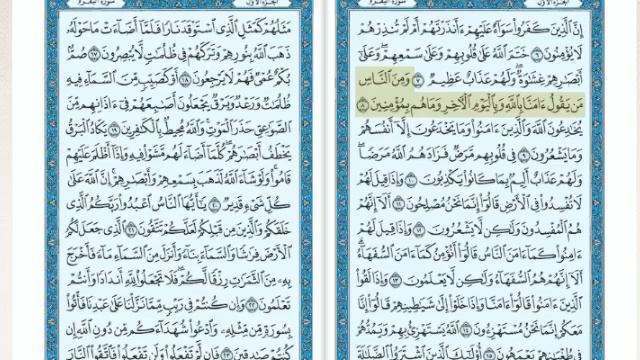 سورة البقرة
الجزء الأول
إِنَّ الَّذِينَ كَفَرُوا سَوَاءٌ عَلَيْهِمْ ءَأَنذَرْتَهُمْ أَمْ لَمْ تُنذِرْهُمْ
لَا يُؤْمِنُونَ ٦ خَتَمَ اللَّهُ عَلَىٰ قُلُوبِهِمْ وَعَلَىٰ سَمْعِهِمْ وَعَلَىٰ
أَبْصَٰرِهِمْ غِشَٰوَةٌ وَلَهُمْ عَذَابٌ عَظِيمٌ ٧ وَمِنَ النَّاسِ
مَن يَقُولُ ءَامَنَّا بِاللَّهِ وَبِالْيَوْمِ الْءَاخِرِ وَمَا هُم بِمُؤْمِنِينَ ٨
يُخَٰدِعُونَ اللَّهَ وَالَّذِينَ ءَامَنُوا وَمَا يَخْدَعُونَ إِلَّا أَنفُسَهُمْ
وَمَا يَشْعُرُونَ ٩ فِي قُلُوبِهِم مَّرَضٌ فَزَادَهُمُ اللَّهُ مَرَضًا
وَلَهُمْ عَذَابٌ أَلِيمٌ بِمَا كَانُوا يَكْذِبُونَ ١٠ وَإِذَا قِيلَ لَهُمْ
لَا تُفْسِدُوا فِي الْأَرْضِ قَالُوا إِنَّمَا نَحْنُ مُصْلِحُونَ ١١ أَلَا إِنَّهُمْ
هُمُ الْمُفْسِدُونَ وَلَٰكِن لَّا يَشْعُرُونَ ١٢ وَإِذَا قِيلَ لَهُمْ
ءَامِنُوا كَمَا ءَامَنَ النَّاسُ قَالُوا أَنُؤْمِنُ كَمَا ءَامَنَ السُّفَهَاءُ
أَلَا إِنَّهُمْ هُمُ السُّفَهَاءُ وَلَٰكِن لَّا يَعْلَمُونَ ١٣ وَإِذَا لَقُوا
الَّذِينَ ءَامَنُوا قَالُوا ءَامَنَّا وَإِذَا خَلَوْا إِلَىٰ شَيَٰطِينِهِمْ قَالُوا إِنَّا
مَعَكُمْ إِنَّمَا نَحْنُ مُسْتَهْزِءُونَ ١٤ اللَّهُ يَسْتَهْزِئُ بِهِمْ وَيَمُدُّهُمْ
فِي طُغْيَٰنِهِمْ يَعْمَهُونَ ١٥ أُولَٰئِكَ الَّذِينَ اشْتَرَوُا الضَّلَٰلَةَ
سورة البقرة
الجزء الأول
مَثَلُهُمْ كَمَثَلِ الَّذِي اسْتَوْقَدَ نَارًا فَلَمَّا أَضَاءَتْ مَا حَوْلَهُ
ذَهَبَ اللَّهُ بِنُورِهِمْ وَتَرَكَهُمْ فِي ظُلُمَٰتٍ لَّا يُبْصِرُونَ ١٧ صُمٌّ
بُكْمٌ عُمْيٌ فَهُمْ لَا يَرْجِعُونَ ١٨ أَوْ كَصَيِّبٍ مِّنَ السَّمَاءِ فِيهِ
ظُلُمَٰتٌ وَرَعْدٌ وَبَرْقٌ يَجْعَلُونَ أَصَٰبِعَهُمْ فِي ءَاذَانِهِم مِّنَ
الصَّوَٰعِقِ حَذَرَ الْمَوْتِ وَاللَّهُ مُحِيطٌ بِالْكَٰفِرِينَ ١٩ يَكَادُ الْبَرْقُ
يَخْطَفُ أَبْصَٰرَهُمْ كُلَّمَا أَضَاءَ لَهُم مَّشَوْا فِيهِ وَإِذَا أَظْلَمَ عَلَيْهِمْ
قَامُوا وَلَوْ شَاءَ اللَّهُ لَذَهَبَ بِسَمْعِهِمْ وَأَبْصَٰرِهِمْ إِنَّ اللَّهَ عَلَىٰ
كُلِّ شَيْءٍ قَدِيرٌ ٢٠ يَٰأَيُّهَا النَّاسُ اعْبُدُوا رَبَّكُمُ الَّذِي
خَلَقَكُمْ وَالَّذِينَ مِن قَبْلِكُمْ لَعَلَّكُمْ تَتَّقُونَ ٢١ الَّذِي جَعَلَ لَكُمُ
الْأَرْضَ فِرَٰشًا وَالسَّمَاءَ بِنَاءً وَأَنزَلَ مِنَ السَّمَاءِ مَاءً فَأَخْرَجَ
بِهِ مِنَ الثَّمَرَٰتِ رِزْقًا لَّكُمْ فَلَا تَجْعَلُوا لِلَّهِ أَندَادًا وَأَنتُمْ
تَعْلَمُونَ ٢٢ وَإِن كُنتُمْ فِي رَيْبٍ مِّمَّا نَزَّلْنَا عَلَىٰ عَبْدِنَا فَأْتُوا
بِسُورَةٍ مِّن مِّثْلِهِ وَادْعُوا شُهَدَاءَكُم مِّن دُونِ اللَّهِ إِن
كُنتُمْ صَٰدِقِينَ ٢٣ فَإِن لَّمْ تَفْعَلُوا وَلَن تَفْعَلُوا فَاتَّقُوا النَّارَ